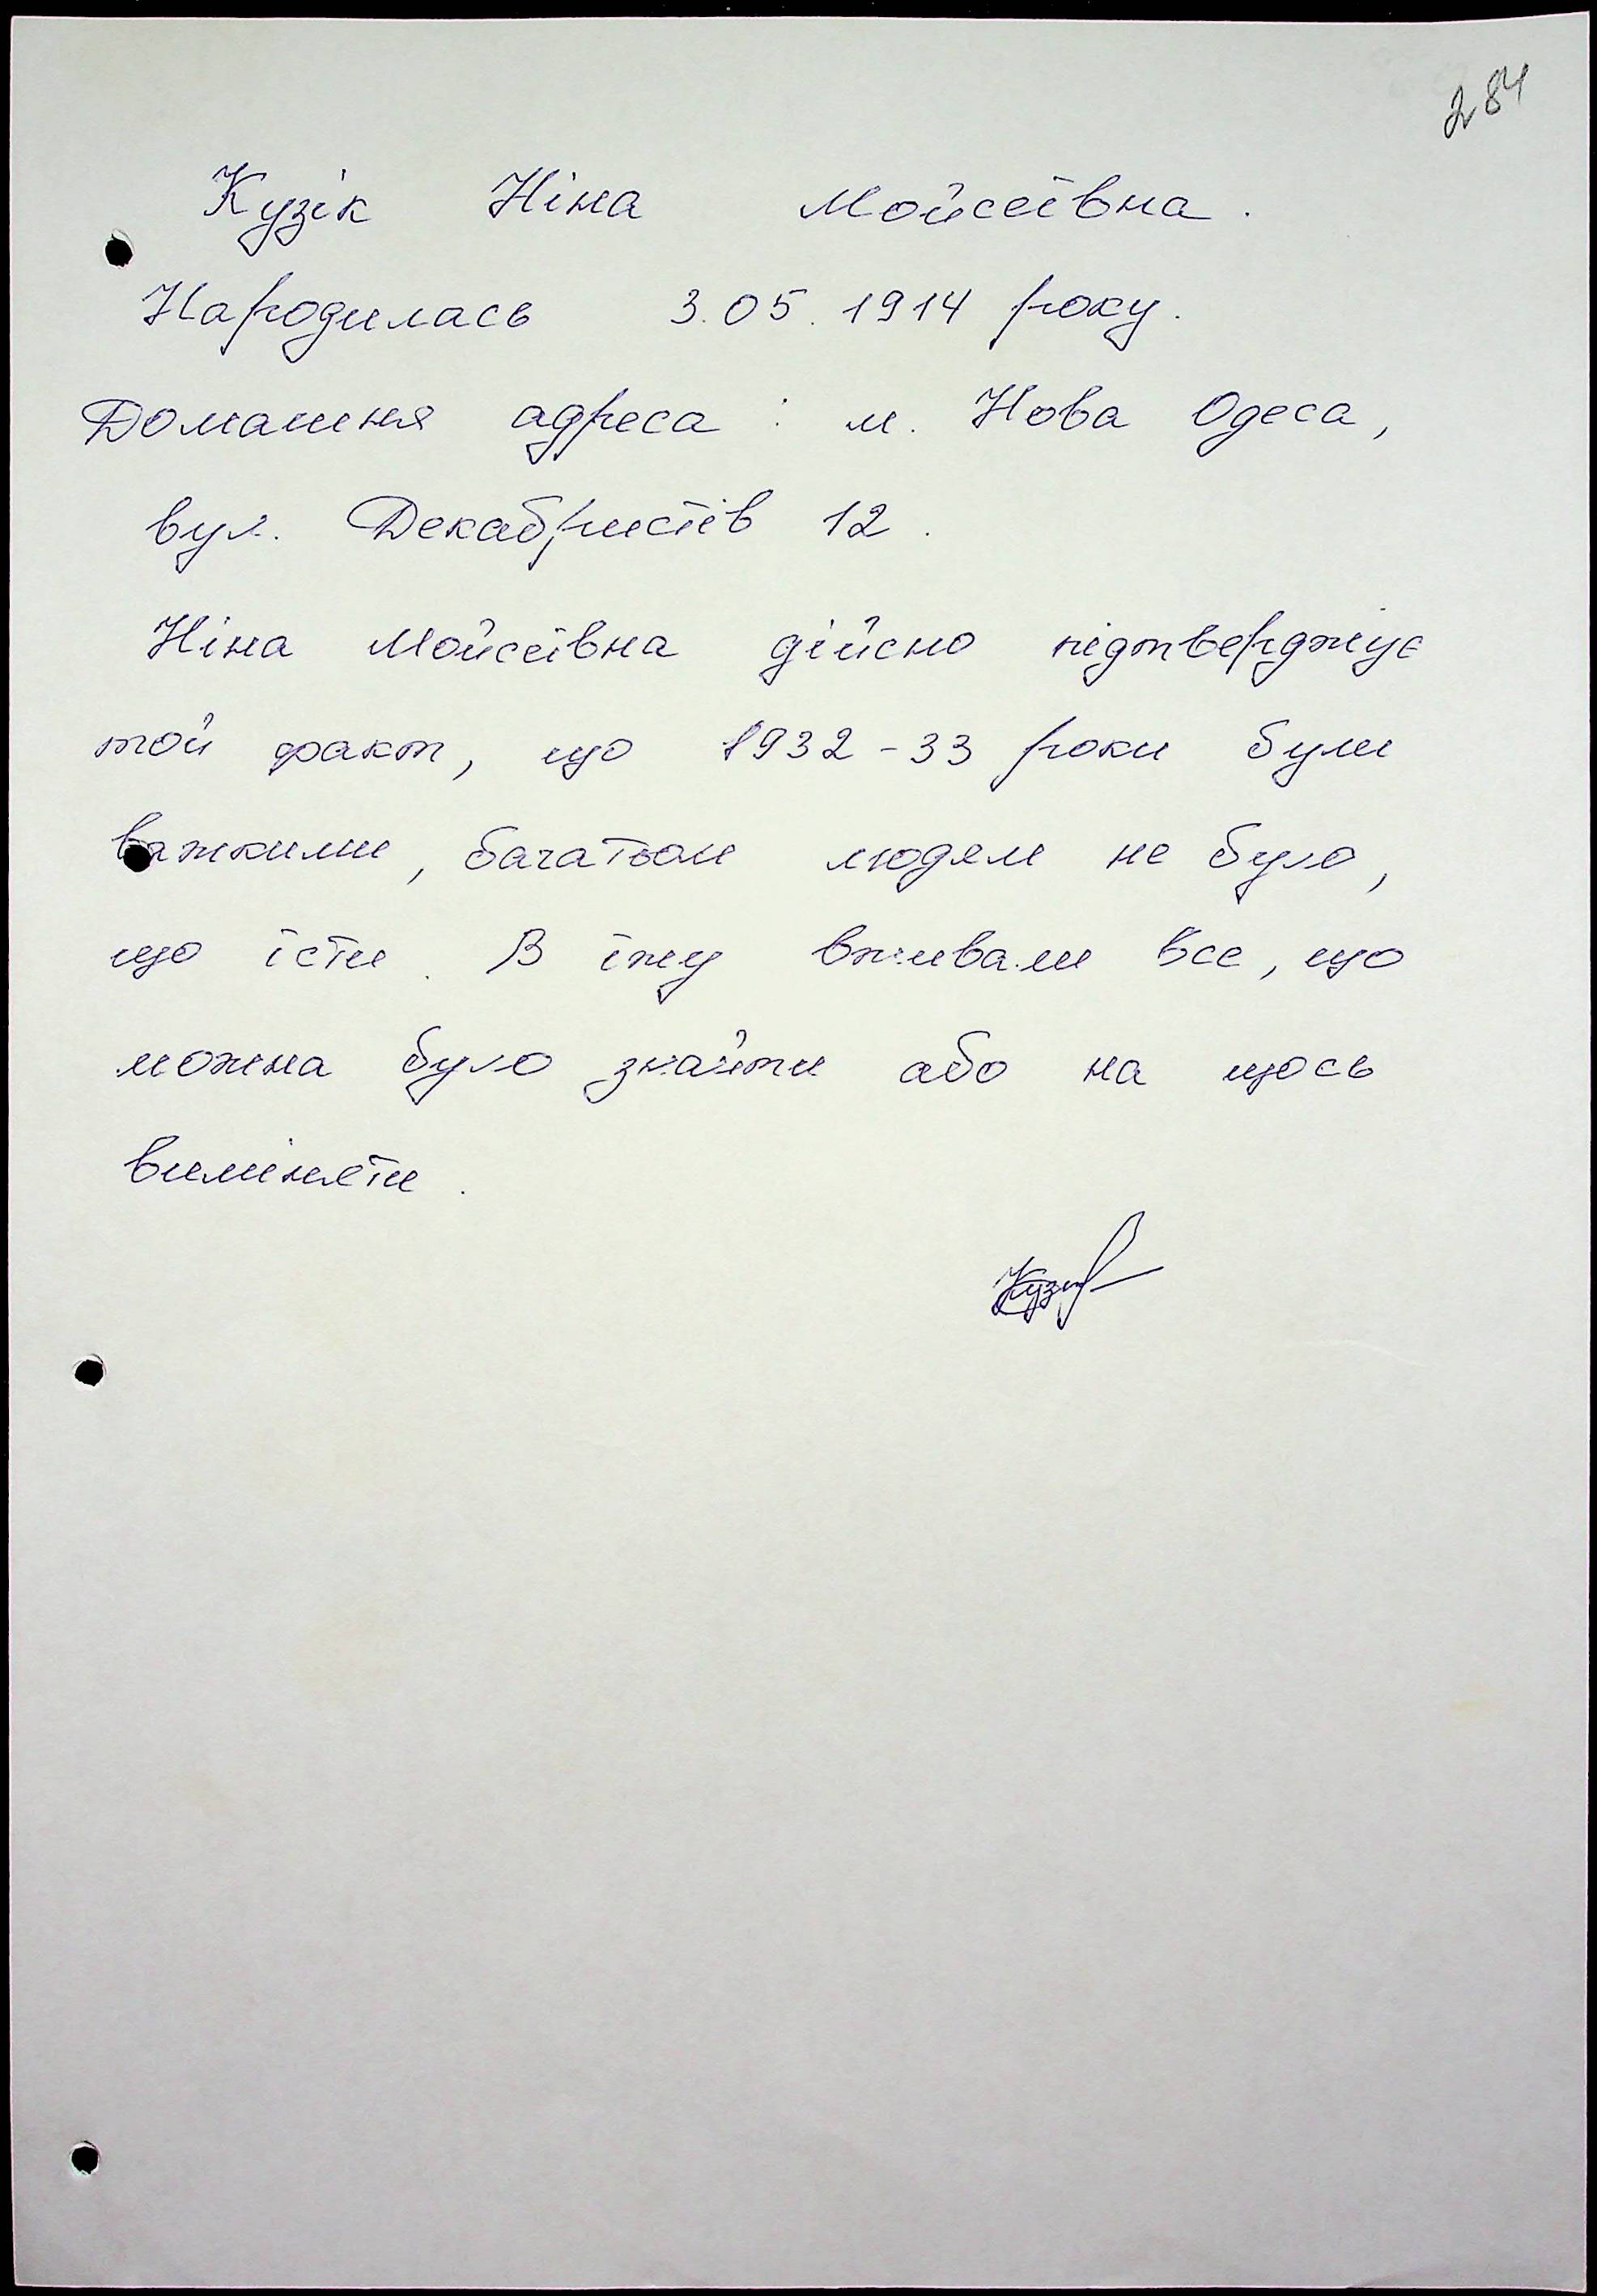 284
Кузік Ніна Мойсеївна.
Народилась 3.05.1914 року.
Домашня адреса: м. Нова Одеса,
вул. Декабристів 12.
Ніна Мойсеївна дійсно підтверджує
той факт, що 1932-33 роки були
важкими, багатьом людям не було,
що їсти. В їжу вживали все, що
можна було знайти або на щось
виміняти.